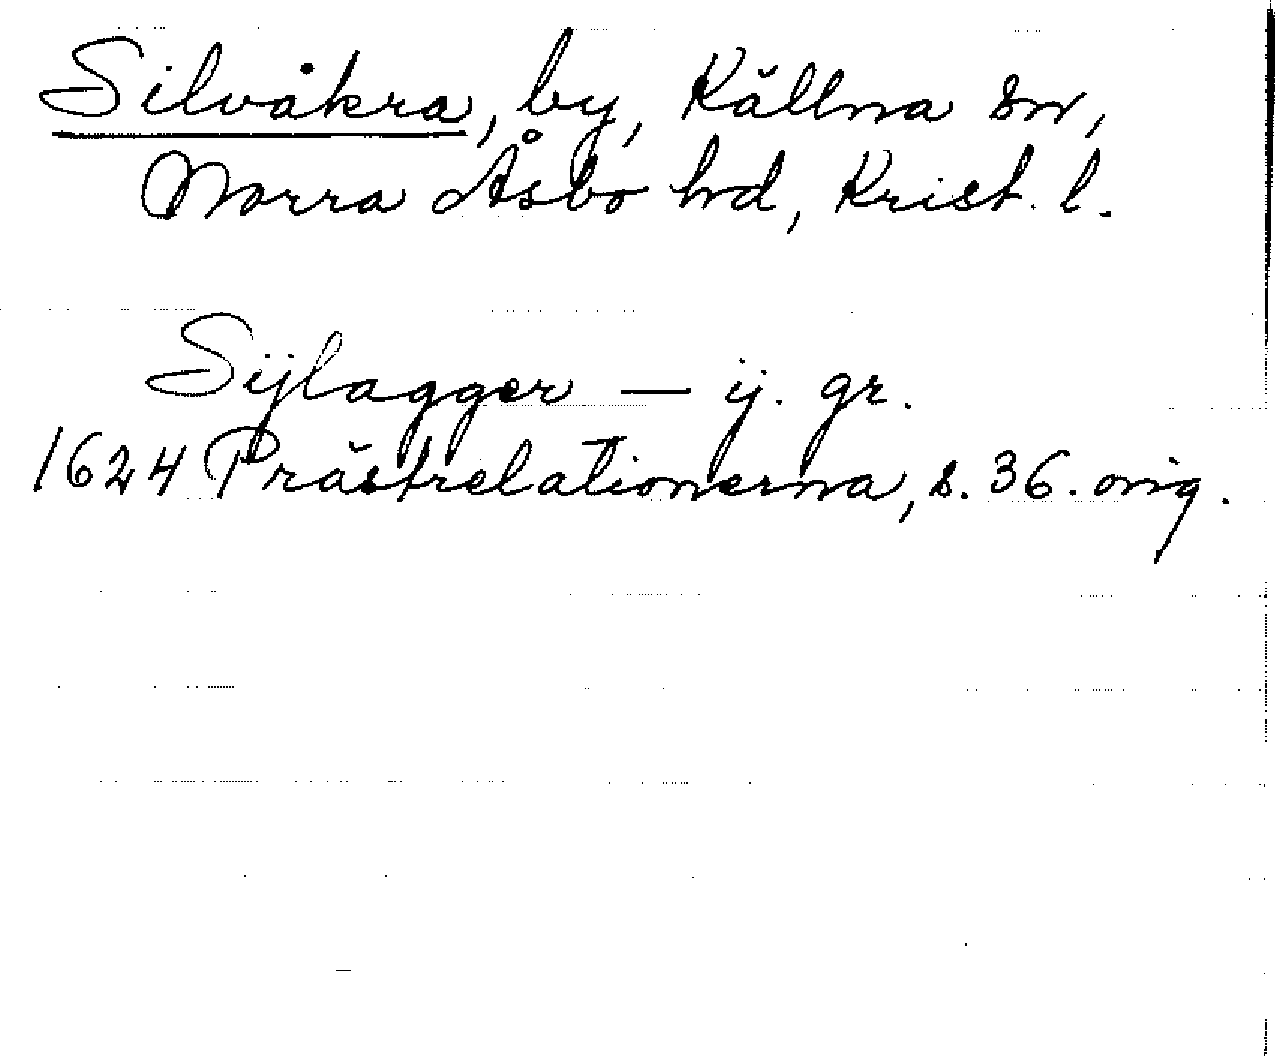 Silvåkra, by, Källna sn,
Norra Åsbo hd, Krist. l.
Sijlagger — ij. gr.
1624 Prästrelationerna, s. 36. orig.